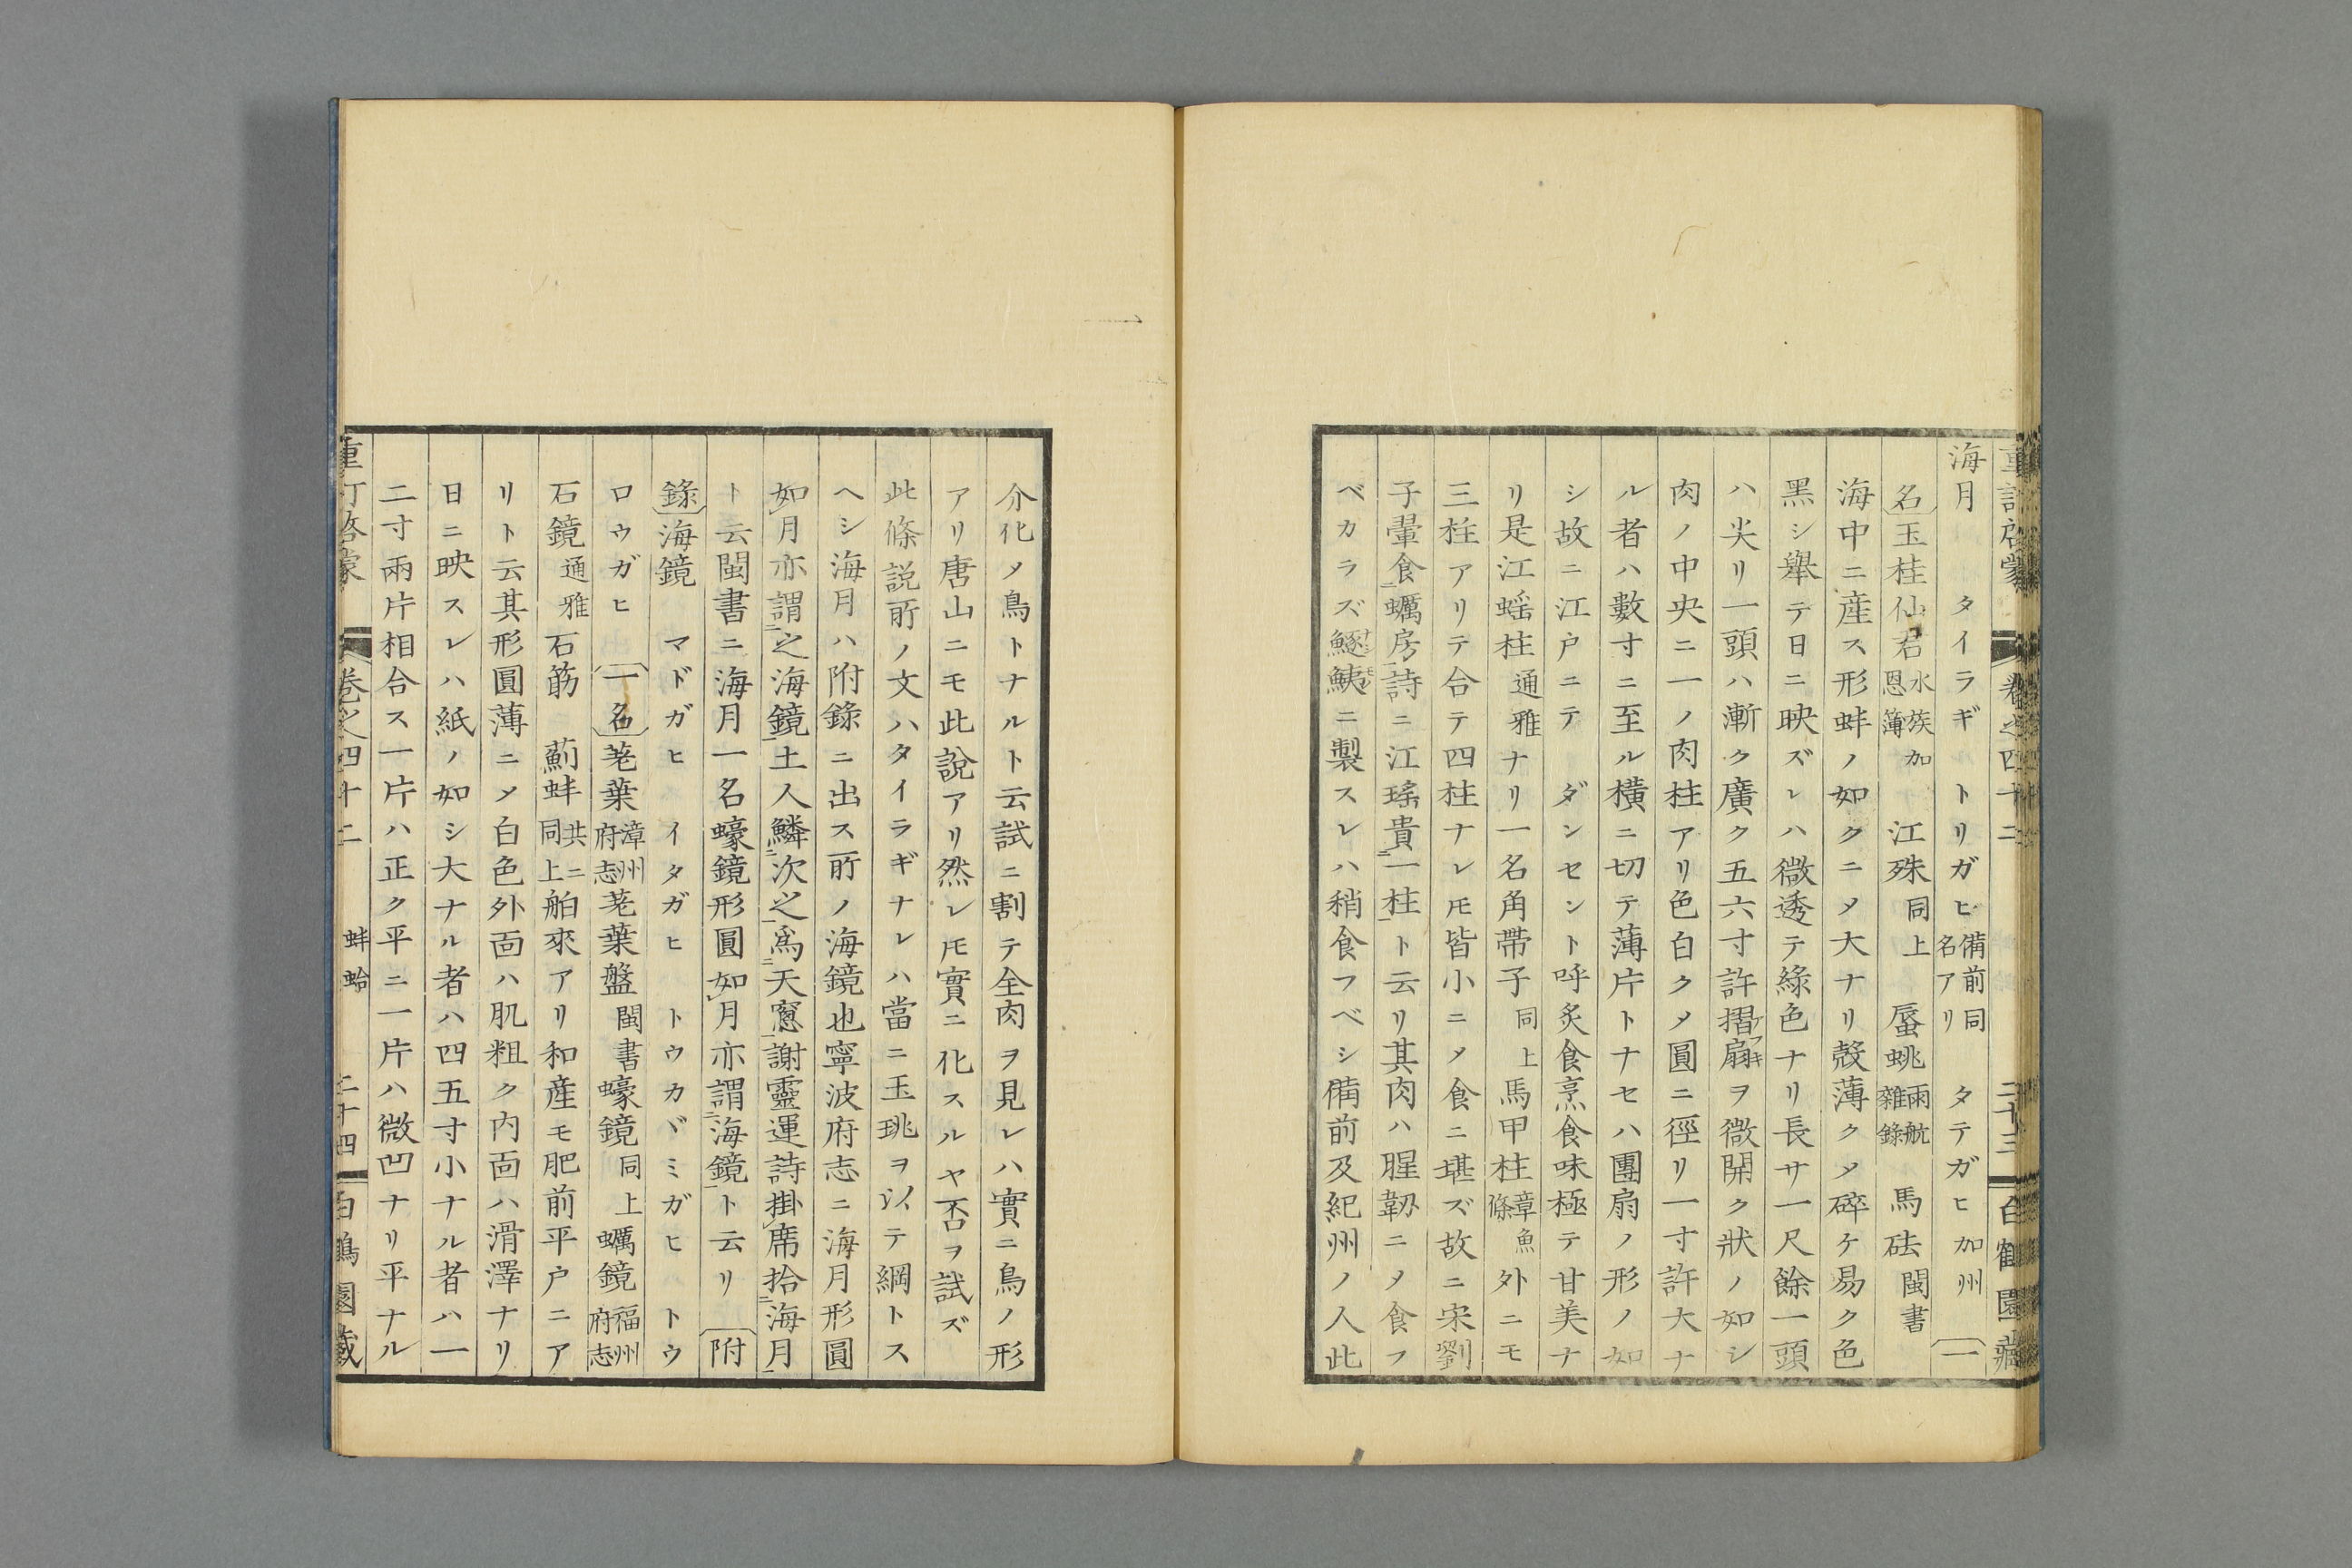 重訂啓蒙 卷之四十二 二十三 白鶴園藏
海月 タイラギ トリガヒ 備前同名アリ タテガヒ 加州 〔一
名〕玉桂仙君 水族加恩簿 江殊 同上 蜃蛈 兩航雜錄 馬砝 閩書
海中ニ産ス形蚌ノ如クニメ大ナリ殼薄クメ碎ケ易ク色
黑シ舉テ日ニ映ズレハ微透テ綠色ナリ長サ一尺餘一頭
ハ尖リ一頭ハ漸ク廣ク五六寸許摺扇ヲ微開ク狀ノ如シ
肉ノ中央ニ一ノ肉柱アリ色白クメ圓ニ徑リ一寸許大ナ
ル者ハ數寸ニ至ル橫ニ切テ薄片トナセハ團扇ノ形ノ如
シ故ニ江戶ニテ ダンセント呼炙食烹食味極テ甘美ナ
リ是江蜯柱 通雅ナリ一名角帶子 同上 馬甲柱 章魚條 外ニモ
三柱アリテ合テ四柱ナレ𪜈皆小ニメ食ニ堪ズ故ニ宋劉
子翬食蠣房詩ニ江瑤貴一柱ト云リ其肉ハ腥韌ニメ食フ
ベカラズ鱁鮧ニ製スレハ稍食フベシ備前及紀州ノ人此
介化メ鳥トナルト云試ニ割テ全肉ヲ見レハ實ニ鳥ノ形
アリ唐山ニモ此說アリ然レ𪜈實ニ化スルヤ否ヲ試ズ
此條説所ノ文ハタイラギナレハ當ニ玉珧ヲ以テ綱トス
ヘシ海月ハ附錄ニ出ス所ノ海鏡也寧波府志ニ海月形圓
如月亦謂之海鏡土人鱗次之爲天窻謝靈運詩掛席拾海月
ト云閩書ニ海月一名蠔鏡形圓如月亦謂海鏡ト云リ 〔附
錄〕海鏡 マドガヒ イタガヒ トウカヾミガヒ トウ
ロウガヒ 〔一名〕荖葉 漳州府志 荖葉盤 閩書 蠔鏡 同上 蠣鏡 福州府志
石鏡 通雅 石筯 薊蚌 共ニ同上 舶來アリ和産モ肥前平戶ニア
リト云其形圓薄ニメ白色外面ハ肌粗ク內面ハ滑澤ナリ
日ニ映スレハ紙ノ如シ大ナル者ハ四五寸小ナル者ハ一
二寸兩片相合ス一片ハ正ク平ニ一片ハ微凹ナリ平ナル
重訂啓蒙 卷之四十二 蚌蛤 二十四 白鶴園藏